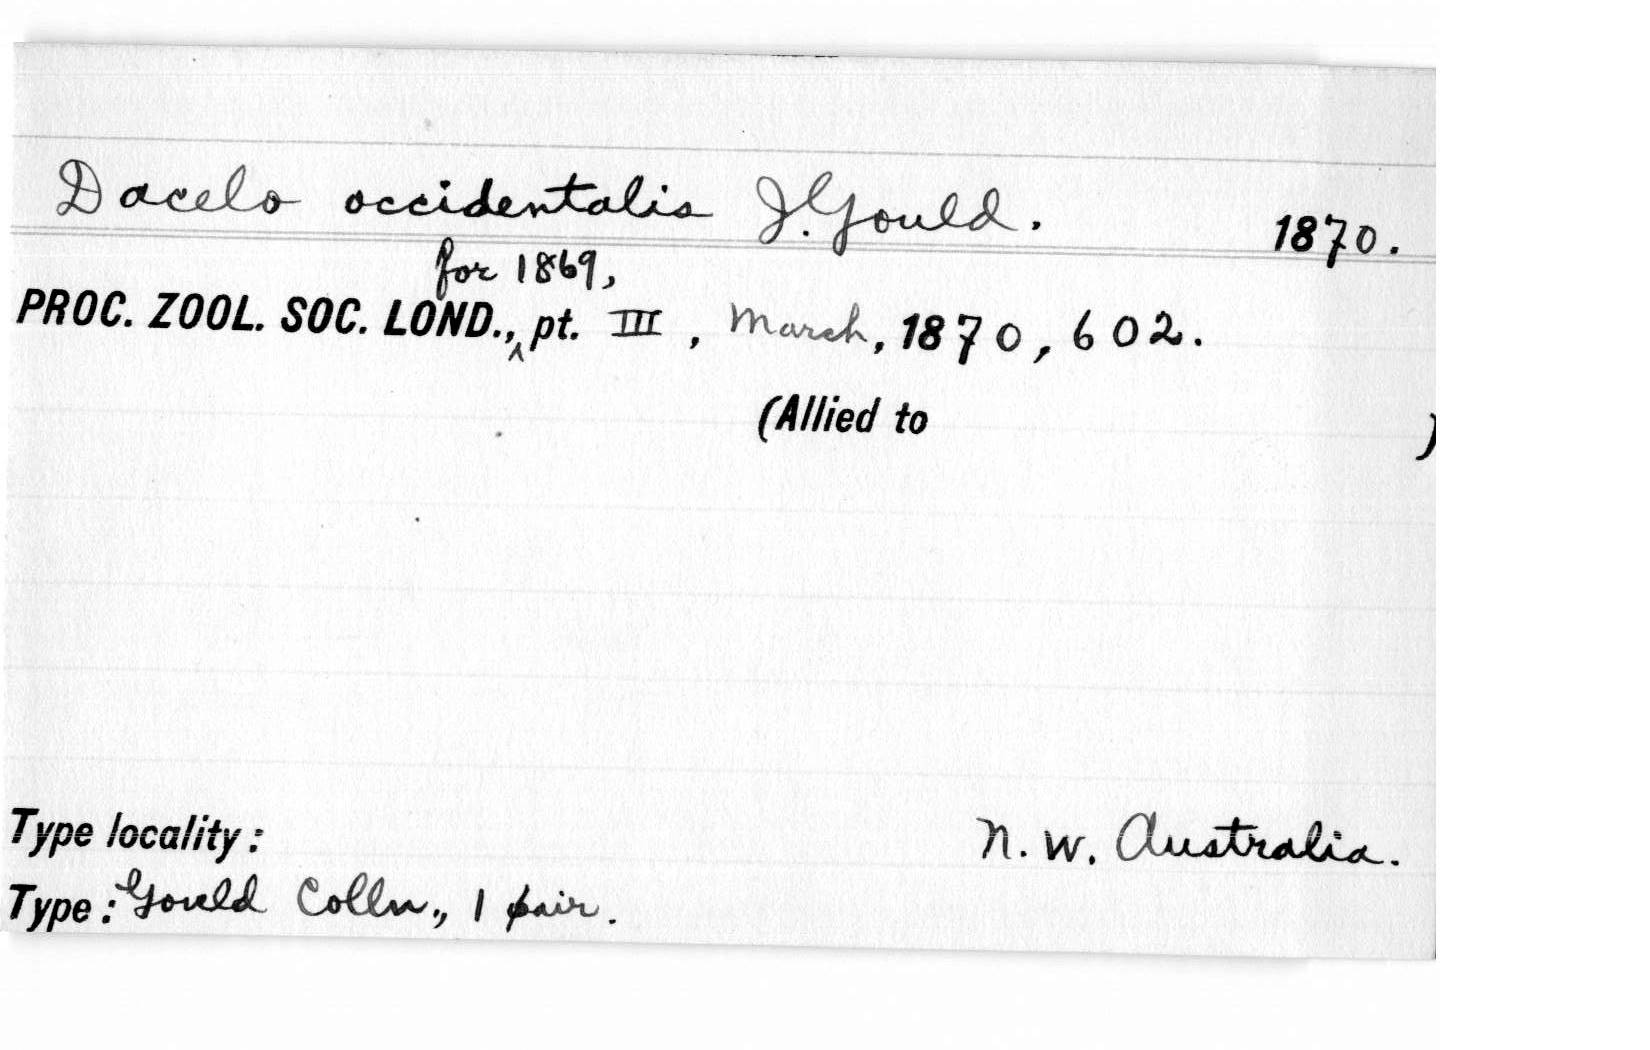 Dacelo occidentalis J. Gould. 1870.
for 1869,
PROC. ZOOL. SOC. LOND., ^ pt. III, March, 1870, 602.
(Allied to )
Type locality: N. W. Australia.
Type: Gould Colln., 1 pair.